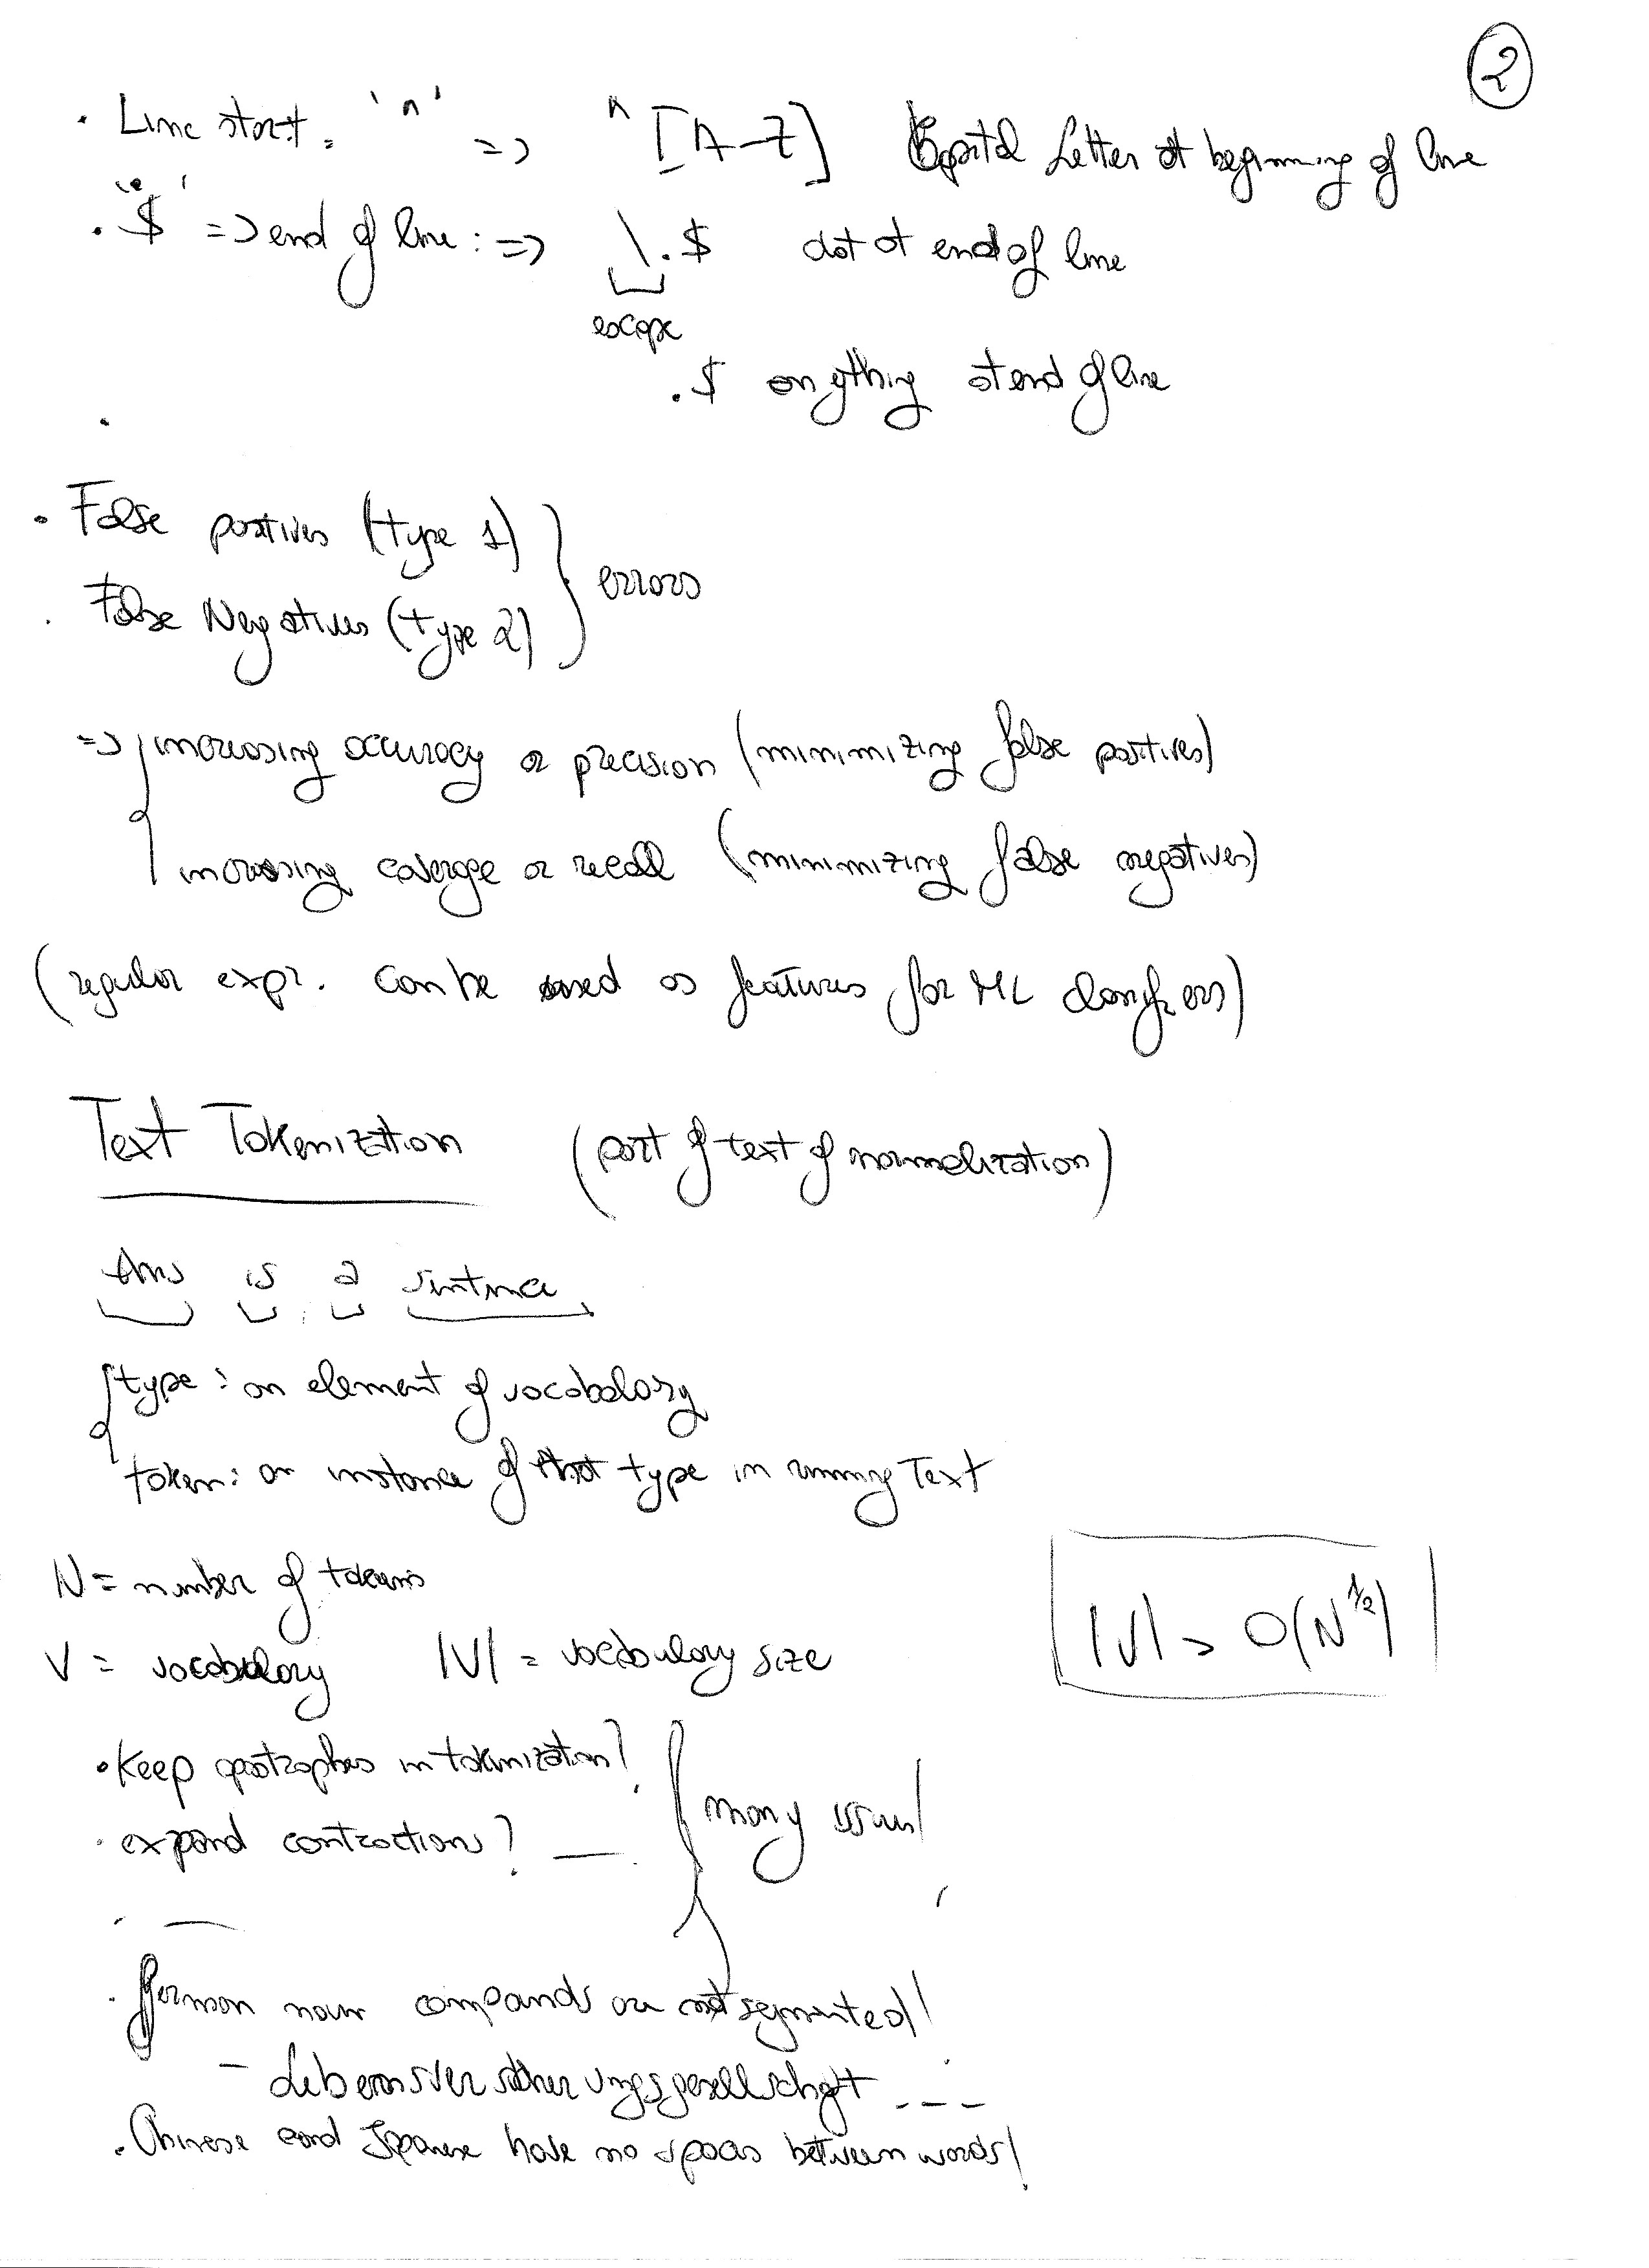 2
• Line start: '^' => ^[A-Z] Capital Letter at beginning of line
• '$' => end of line: => \.$ dot at end of line
escape
.$ anything at end of line
• False positives (type 1)
• False Negatives (type 2)
errors
=> increasing accuracy or precision (minimizing false positives)
increasing coverage or recall (minimizing false negatives)
(regular expr. can be used as features for ML classifiers)
Text Tokeniztion (part of text of normalization)
this is a sentence
type: an element of vocabolary
token: an instance of that type in running Text
N = number of tokens
V = vocabulary |V| = vocabulary size
|V| > O(N^1/2)
• Keep apostrophes in tokenization?
• expand contractions? —
many issues!
• —
• German noun compounds are not segmented!
- Lebensversicherungsgesellschaft - - -
• Chinese and Japanese have no spaces between words!